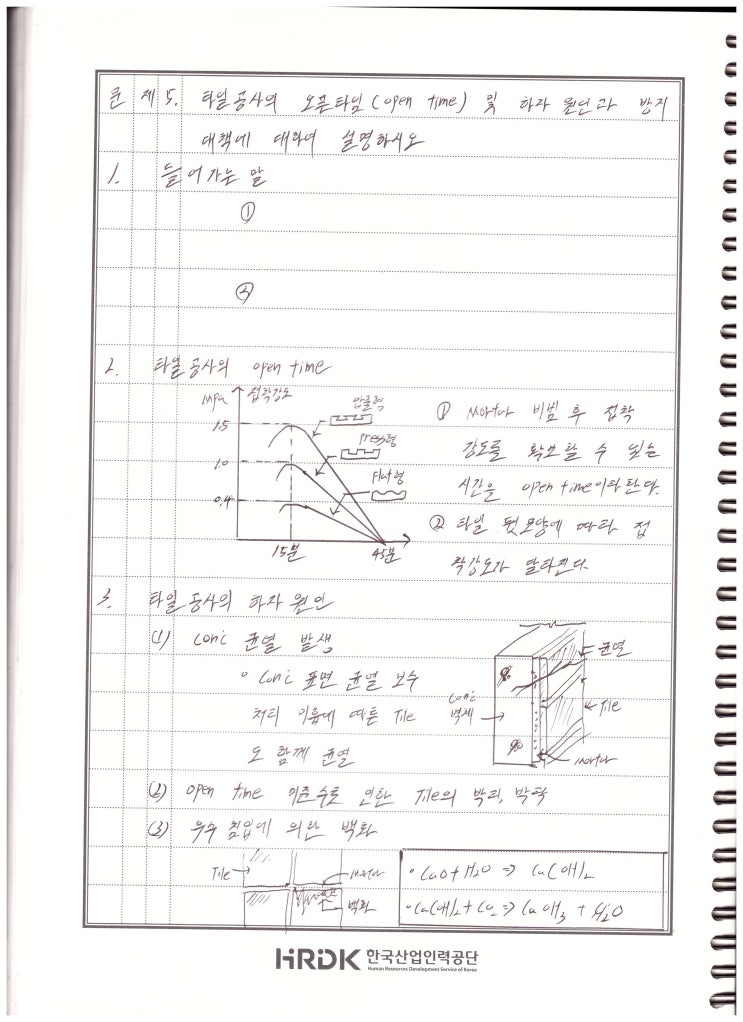 문 제 5. 타일공사의 오픈타임(open time) 및 하자 원인과 방지
대책에 대하여 설명하시오
1. 들어가는 말
①
②
2. 타일공사의 open time
MPa 접착강도
1.5
1.0
0.4
15분 45분
압출형
Press형
Flat형
① Morta 비빔 후 접착
강도를 확보할 수 있는
시간을 open time이라 한다.
② 타일 뒷모양에 따라 접
착강도가 달라진다.
3. 타일공사의 하자 원인
(1) Conc 균열 발생
• Conc 표면 균열 보수
처리 미흡에 따른 Tile
도 함께 균열
균열
Conc
벽체
Tile
Morta
(2) open time 미준수로 인한 Tile의 박리, 박락
(3) 우수 침입에 의한 백화
Tile
Morta
백화
• CaO + H2O ⇒ Ca(OH)2
• Ca(OH)2 + CO2 ⇒ CaOH3 + H2O
HRDK 한국산업인력공단
Human Resources Development Service of Korea